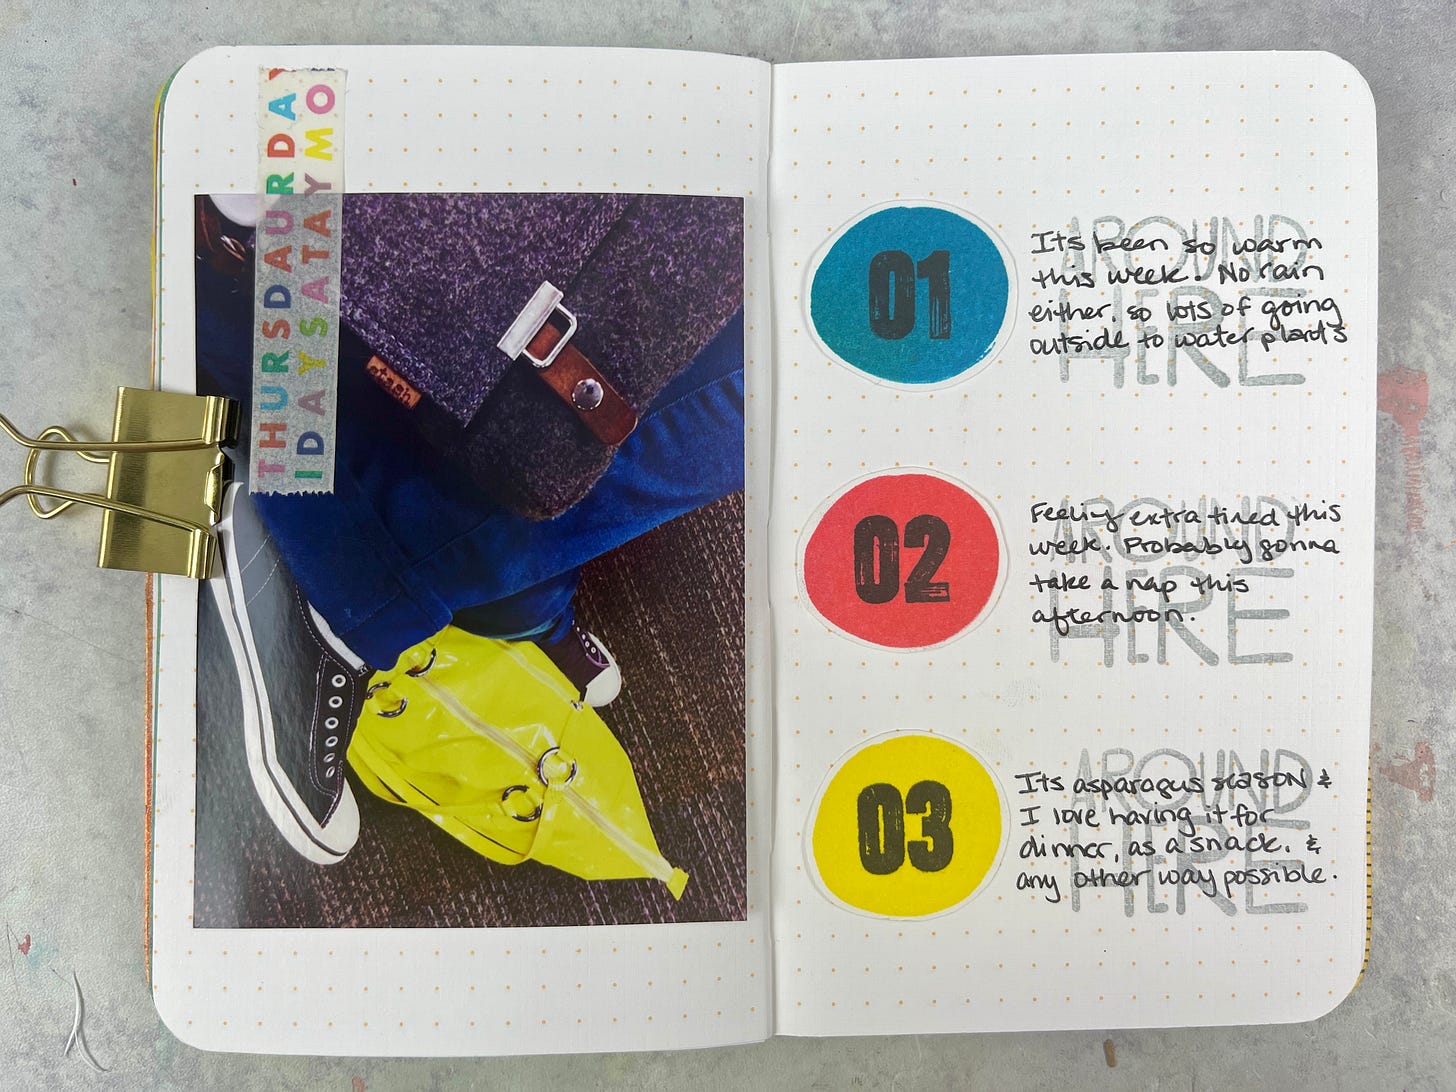 THURSDAURDAY
IDAYSATAYMO
stash
01
AROUND
HERE
Its been so warm
this week. No rain
either, so lots of going
outside to water plants
02
AROUND
HERE
Feeling extra tired this
week. Probably gonna
take a nap this
afternoon.
03
AROUND
HERE
Its asparagus season &
I love having it for
dinner, as a snack, &
any other way possible.